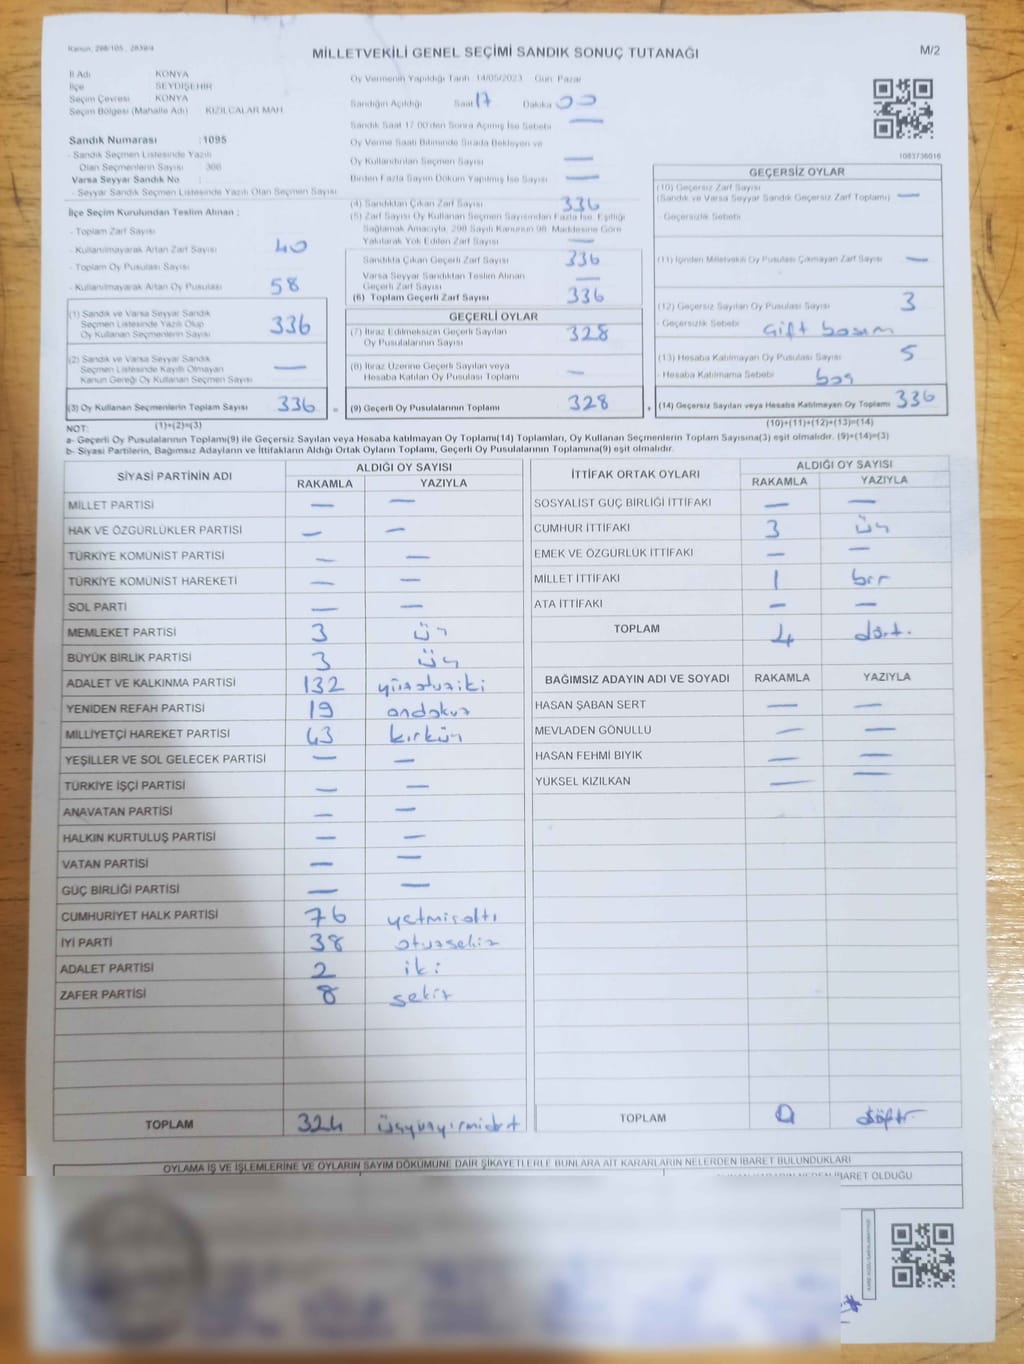 Kanun, 298/105 , 2839/4
MİLLETVEKİLİ GENEL SEÇİMİ SANDIK SONUÇ TUTANAĞI
M/2
İl Adı KONYA
İlçe SEYDİŞEHİR
Seçim Çevresi KONYA
Seçim Bölgesi (Mahalle Adı) KIZILCALAR MAH
Sandık Numarası : 1095
- Sandık Seçmen Listesinde Yazılı
Olan Seçmenlerin Sayısı : 366
Varsa Seyyar Sandık No :
- Seyyar Sandık Seçmen Listesinde Yazılı Olan Seçmen Sayısı
İlçe Seçim Kurulundan Teslim Alınan :
- Toplam Zarf Sayısı
- Kullanılmayarak Artan Zarf Sayısı 40
- Toplam Oy Pusulası Sayısı
- Kullanılmayarak Artan Oy Pusulası 58
(1) Sandık ve Varsa Seyyar Sandık
Seçmen Listesinde Yazılı Olup
Oy Kullanan Seçmenlerin Sayısı 336
(2) Sandık ve Varsa Seyyar Sandık
Seçmen Listesinde Kayıtlı Olmayan
Kanun Gereği Oy Kullanan Seçmen Sayısı —
(3) Oy Kullanan Seçmenlerin Toplam Sayısı 336 =
(1)+(2)=(3)
Oy Vermenin Yapıldığı Tarih : 14/05/2023 Gün: Pazar
Sandığın Açıldığı Saat 17 Dakika 00
Sandık Saat 17:00'den Sonra Açılmış İse Sebebi —
Oy Verme Saati Bitiminde Sırada Bekleyen ve
Oy Kullandırılan Seçmen Sayısı —
Birden Fazla Sayım Döküm Yapılmış İse Sayısı —
(4) Sandıktan Çıkan Zarf Sayısı 336
(5) Zarf Sayısı Oy Kullanan Seçmen Sayısından Fazla İse, Eşitliği
Sağlamak Amacıyla, 298 Sayılı Kanunun 98. Maddesine Göre
Yakılarak Yok Edilen Zarf Sayısı —
Sandıkta Çıkan Geçerli Zarf Sayısı 336
Varsa Seyyar Sandıktan Teslim Alınan
Geçerli Zarf Sayısı —
(6) Toplam Geçerli Zarf Sayısı 336
GEÇERLİ OYLAR
(7) İtiraz Edilmeksizin Geçerli Sayılan
Oy Pusulalarının Sayısı 328
(8) İtiraz Üzerine Geçerli Sayılan veya
Hesaba Katılan Oy Pusulası Toplamı —
(9) Geçerli Oy Pusulalarının Toplamı 328 +
1083736016
GEÇERSİZ OYLAR
(10) Geçersiz Zarf Sayısı
(Sandık ve Varsa Seyyar Sandık Geçersiz Zarf Toplamı) —
- Geçersizlik Sebebi
(11) İçinden Milletvekili Oy Pusulası Çıkmayan Zarf Sayısı —
(12) Geçersiz Sayılan Oy Pusulası Sayısı 3
- Geçersizlik Sebebi Çift basım
(13) Hesaba Katılmayan Oy Pusulası Sayısı 5
- Hesaba Katılmama Sebebi boş
(14) Geçersiz Sayılan veya Hesaba Katılmayan Oy Toplamı 336
(10)+(11)+(12)+(13)=(14)
NOT:
a- Geçerli Oy Pusulalarının Toplamı(9) ile Geçersiz Sayılan veya Hesaba katılmayan Oy Toplamı(14) Toplamları, Oy Kullanan Seçmenlerin Toplam Sayısına(3) eşit olmalıdır. (9)+(14)=(3)
b- Siyasi Partilerin, Bağımsız Adayların ve İttifakların Aldığı Ortak Oyların Toplamı, Geçerli Oy Pusulalarının Toplamına(9) eşit olmalıdır.
SİYASİ PARTİNİN ADI ALDIĞI OY SAYISI
RAKAMLA YAZIYLA
MİLLET PARTİSİ — —
HAK VE ÖZGÜRLÜKLER PARTİSİ — —
TÜRKİYE KOMÜNİST PARTİSİ — —
TÜRKİYE KOMÜNİST HAREKETİ — —
SOL PARTİ — —
MEMLEKET PARTİSİ 3 üç
BÜYÜK BİRLİK PARTİSİ 3 üç
ADALET VE KALKINMA PARTİSİ 132 yüzotuziki
YENİDEN REFAH PARTİSİ 19 ondokuz
MİLLİYETÇİ HAREKET PARTİSİ 43 kırküç
YEŞİLLER VE SOL GELECEK PARTİSİ — —
TÜRKİYE İŞÇİ PARTİSİ — —
ANAVATAN PARTİSİ — —
HALKIN KURTULUŞ PARTİSİ — —
VATAN PARTİSİ — —
GÜÇ BİRLİĞİ PARTİSİ — —
CUMHURİYET HALK PARTİSİ 76 yetmişaltı
İYİ PARTİ 38 otuzsekiz
ADALET PARTİSİ 2 iki
ZAFER PARTİSİ 8 sekiz
TOPLAM 324 üçyüzyirmidört
İTTİFAK ORTAK OYLARI ALDIĞI OY SAYISI
RAKAMLA YAZIYLA
SOSYALİST GÜÇ BİRLİĞİ İTTİFAKI — —
CUMHUR İTTİFAKI 3 üç
EMEK VE ÖZGÜRLÜK İTTİFAKI — —
MİLLET İTTİFAKI 1 bir
ATA İTTİFAKI — —
TOPLAM 4 dört.
BAĞIMSIZ ADAYIN ADI VE SOYADI RAKAMLA YAZIYLA
HASAN ŞABAN SERT — —
MEVLADEN GÖNÜLLÜ — —
HASAN FEHMİ BIYIK — —
YÜKSEL KIZILKAN — —
TOPLAM 0
OYLAMA İŞ VE İŞLEMLERİNE VE OYLARIN SAYIM DÖKÜMÜNE DAİR ŞİKAYETLERLE BUNLARA AİT KARARLARIN NELERDEN İBARET BULUNDUKLARI
İBARET OLDUĞU